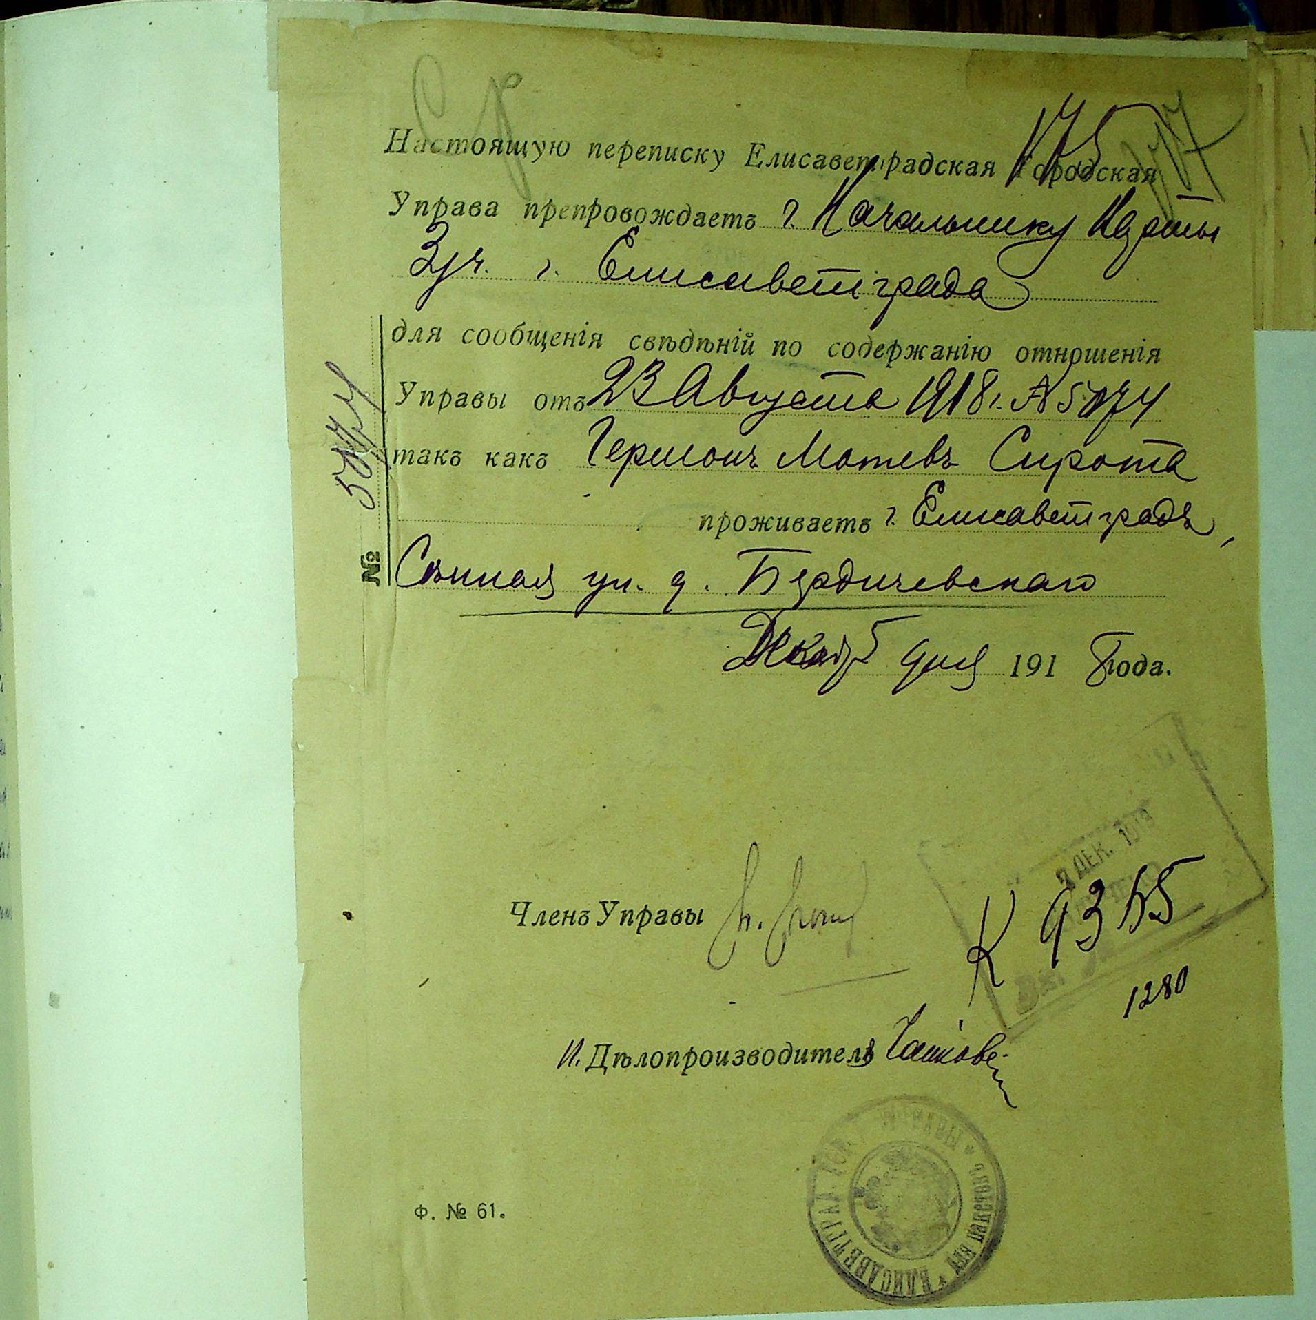 175
Настоящую переписку Елисаветградская Городская
Управа препровождаетъ г. Начальнику
3 уч. г. Елисаветграда
для сообщенія свѣдѣній по содержанію отношенія
Управы отъ 23 Августа 1918 г. № 5074
такъ какъ Гершонъ Мотевъ Сирота
проживаетъ г. Елисаветградъ,
Сѣнная ул. д. Бердичевскаго
№ 5074
Декаб 5 дня 1918 года.
Членъ Управы
2 ДЕК. 191
К 9355
Вх. №
1280
И. Дѣлопроизводитель
ЕЛИСАВЕТГРАД. ГОР. УПРАВЫ * ДЛЯ ПАКЕТОВЪ *
Ф. № 61.